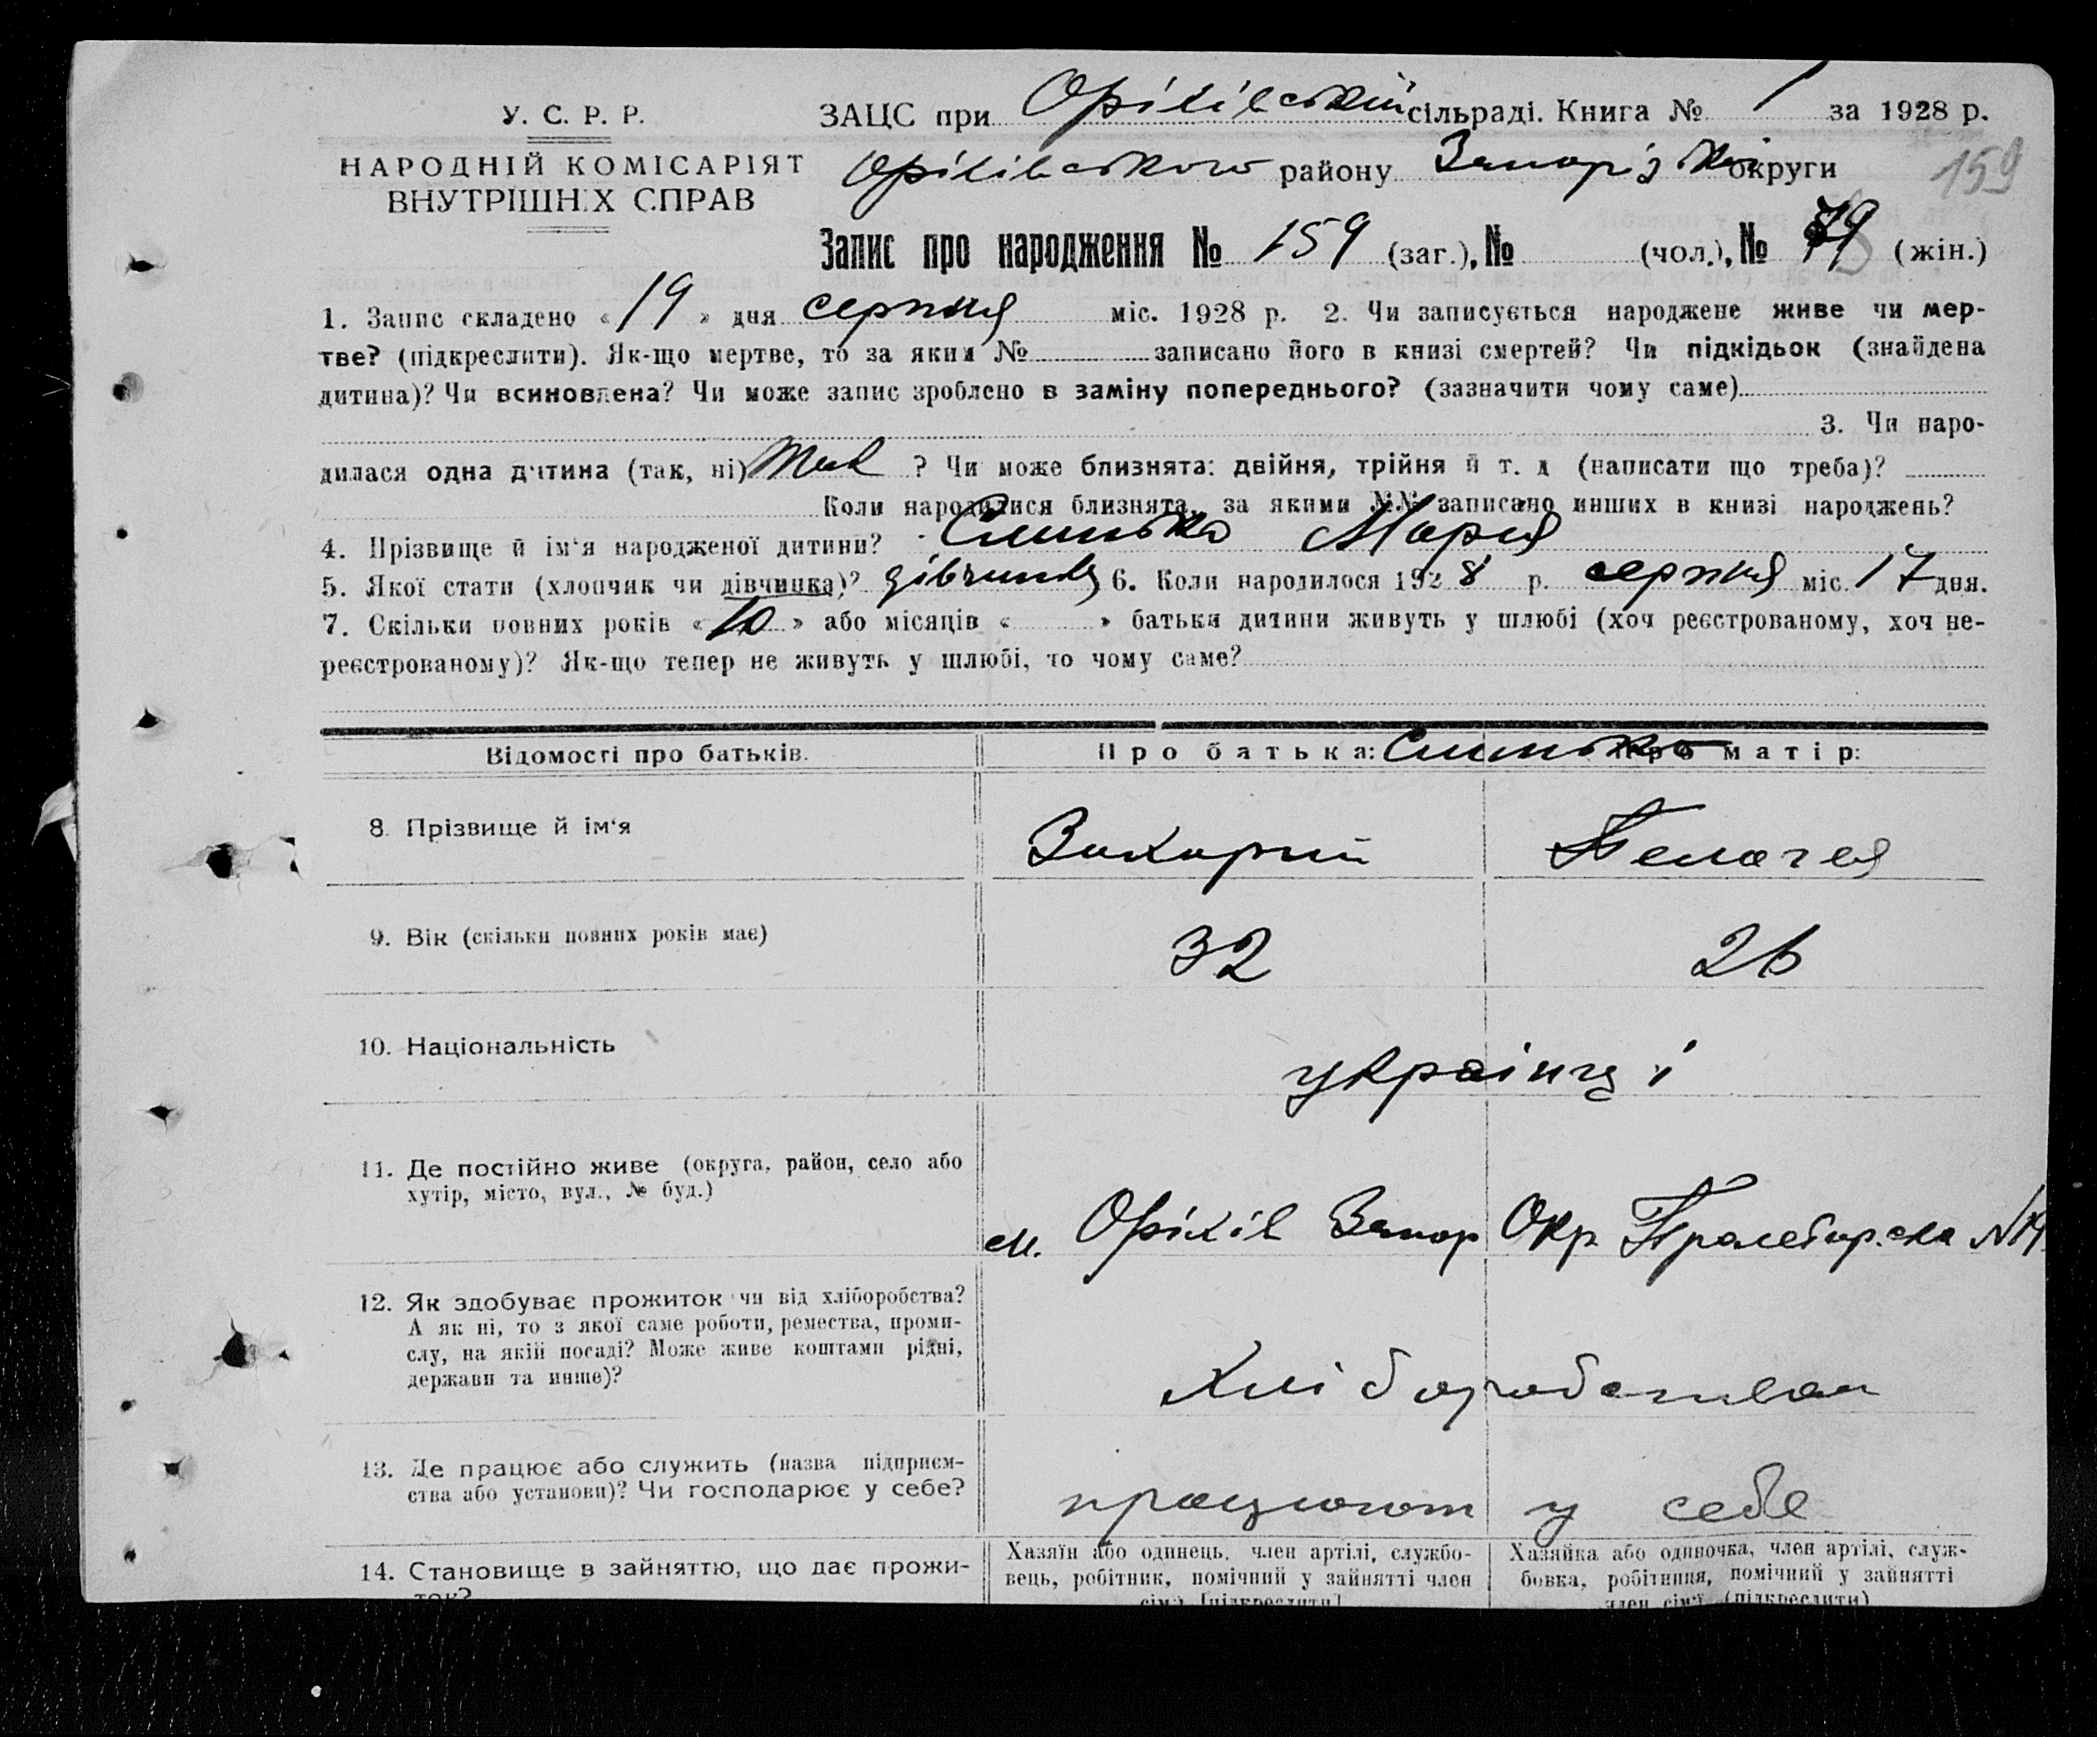 У. С. Р. Р.
НАРОДНІЙ КОМІСАРІЯТ
ВНУТРІШНІХ СПРАВ
ЗАЦС при Оріхівській сільраді. Книга № 1 за 1928 р.
Оріхівського району Запорізької округи
159
Запис про народження № 159 (заг.), № (чол.), № 79 (жін.)
1. Запис складено «19» дня серпня міс. 1928 р. 2. Чи записується народжене живе чи мер-
тве? (підкреслити). Як-що мертве, то за яким № записано його в книзі смертей? Чи підкідьок (знайдена
дитина)? Чи всиновлена? Чи може запис зроблено в заміну попереднього? (зазначити чому саме)
3. Чи наро-
дилася одна дитина (так, ні) так ? Чи може близнята: двійня, трійня й т. д (написати що треба)?
Коли народилися близнята, за якими №№ записано инших в книзі народжень?
4. Прізвище й ім'я народженої дитини? Мария
5. Якої стати (хлопчик чи дівчинка)? дівчинка 6. Коли народилося 1928 р. серпня міс. 17 дня.
7. Скільки повних років «10» або місяців « » батьки дитини живуть у шлюбі (хоч реєстрованому, хоч не-
реєстрованому)? Як-що тепер не живуть у шлюбі, то чому саме?
Відомості про батьків.
Про батька: Про матір:
8. Прізвище й ім'я
Захарий Пелагея
9. Вік (скільки повних років має)
32 26
10. Національність
українці
11. Де постійно живе (округа, район, село або
хутір, місто, вул., № буд.)
м. Оріхів Запор Окр. Пролетарська
12. Як здобуває прожиток чи від хліборобства?
А як ні, то з якої саме роботи, ремества, проми-
слу, на якій посаді? Може живе коштами рідні,
держави та инше)?
Хліборобством
13. Де працює або служить (назва підприєм-
ства або установи)? Чи господарює у себе?
працюют у себе
14. Становище в зайняттю, що дає прожи-
ток?
Хазяїн або одинець, член артілі, службо-
вець, робітник, помічний у зайнятті член
сім'ї [підкреслити]
Хазяйка або одиночка, член артілі, служ-
бовка, робітниця, помічний у зайнятті
член сім'ї (підкреслити)